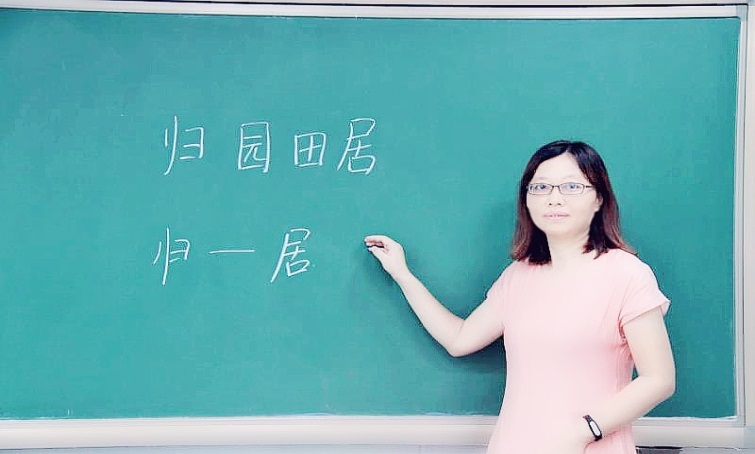 归园田居
归一居